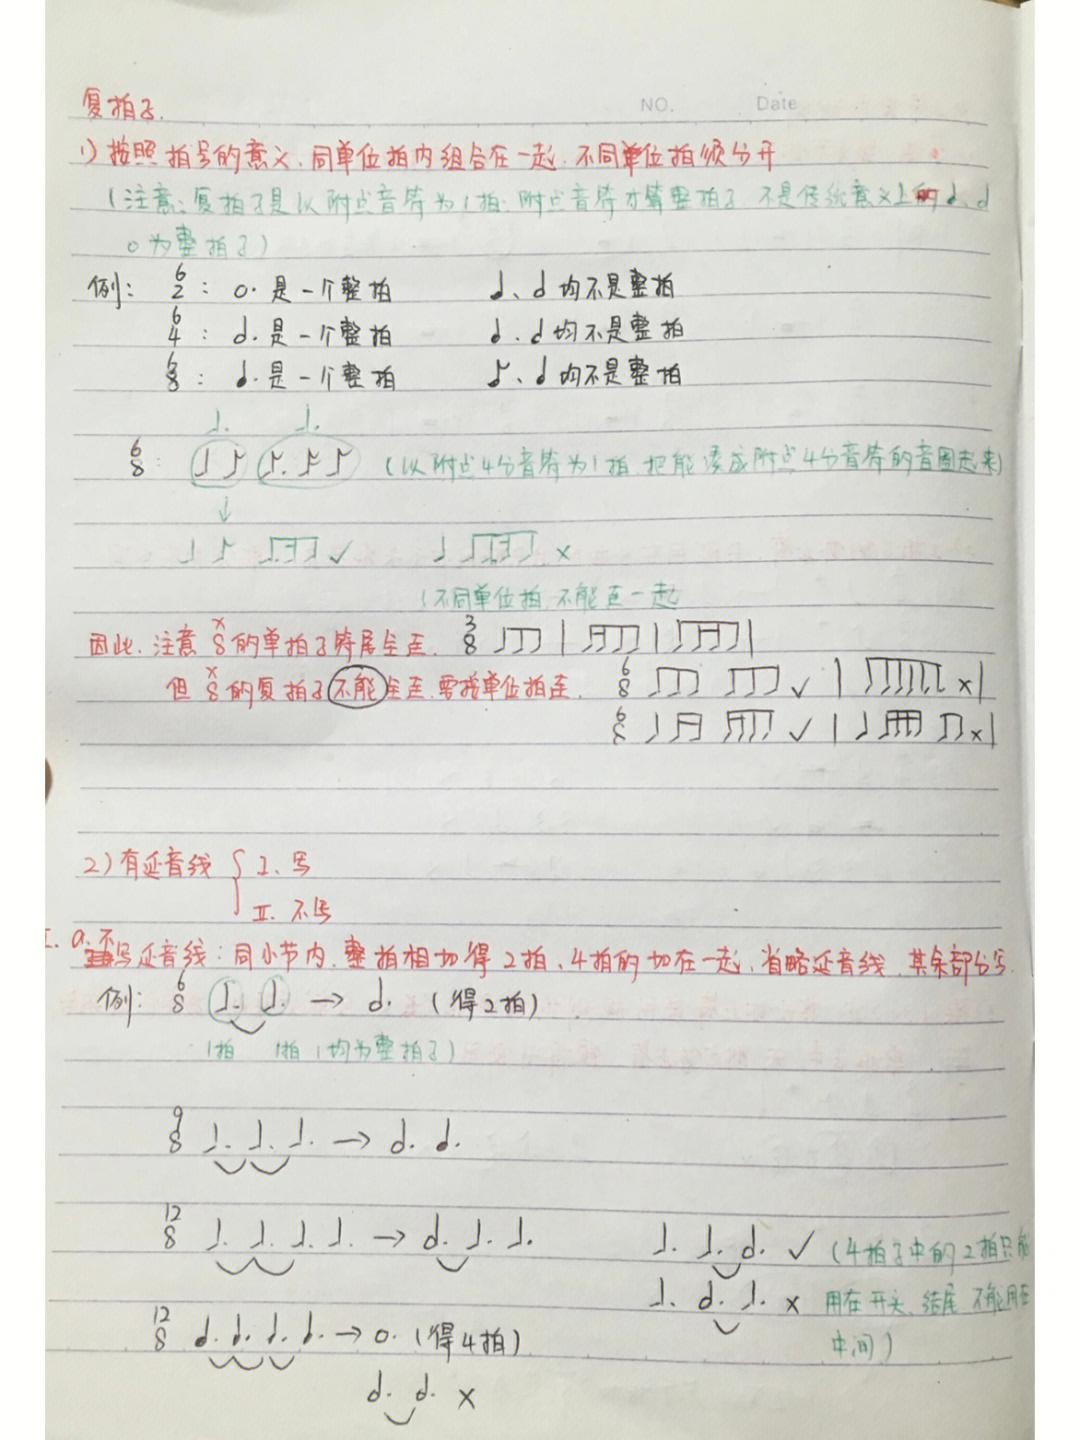 NO.    Date
复拍子.
1) 按照拍号的意义,同单位拍内组合在一起,不同单位拍须分开
(注意:复拍子是以附点音符为1拍,附点音符才算整拍子,不是传统意义上的𝅗𝅥、𝅗𝅥
o为整拍子)
例: 6/2 : o. 是一个整拍    ♩、𝅗𝅥 均不是整拍
6/4 : 𝅗𝅥. 是一个整拍    𝅗𝅥、𝅗𝅥 均不是整拍
6/8 : 𝅗𝅥. 是一个整拍    ♪、𝅗𝅥 均不是整拍
♩.    ♩.
6/8 : ♩ ♪ ♪. ♪ ♪ (以附点4分音符为1拍,把能凑成附点4分音符的音圈起来)
↓
✓    ×
(不同单位拍,不能连一起
因此,注意 x/8 的单拍子符尾全连. 3/8
但 x/8 的复拍子不能全连,需按单位拍连. 6/8 ✓ | × |
6/8 ✓ | × |
2) 有延音线 { I. 写
II. 不写
I. a. 不写延音线:同小节内,整拍相切得2拍、4拍的切在一起,省略延音线,其余部分写.
例: 6/8 ♩. ♩. → 𝅗𝅥. (得2拍)
1拍 1拍 (均为整拍子)
9/8 ♩. ♩. ♩. → 𝅗𝅥. 𝅗𝅥.
12/8 ♩. ♩. ♩. ♩. → 𝅗𝅥. ♩. ♩.    ♩. ♩. 𝅗𝅥. ✓ (4拍子中的2拍只能
♩. 𝅗𝅥. ♩. × 用在开头、结尾,不能用在
12/8 𝅗𝅥. 𝅗𝅥. 𝅗𝅥. 𝅗𝅥. → o. (得4拍)    中间)
𝅗𝅥. 𝅗𝅥. ×